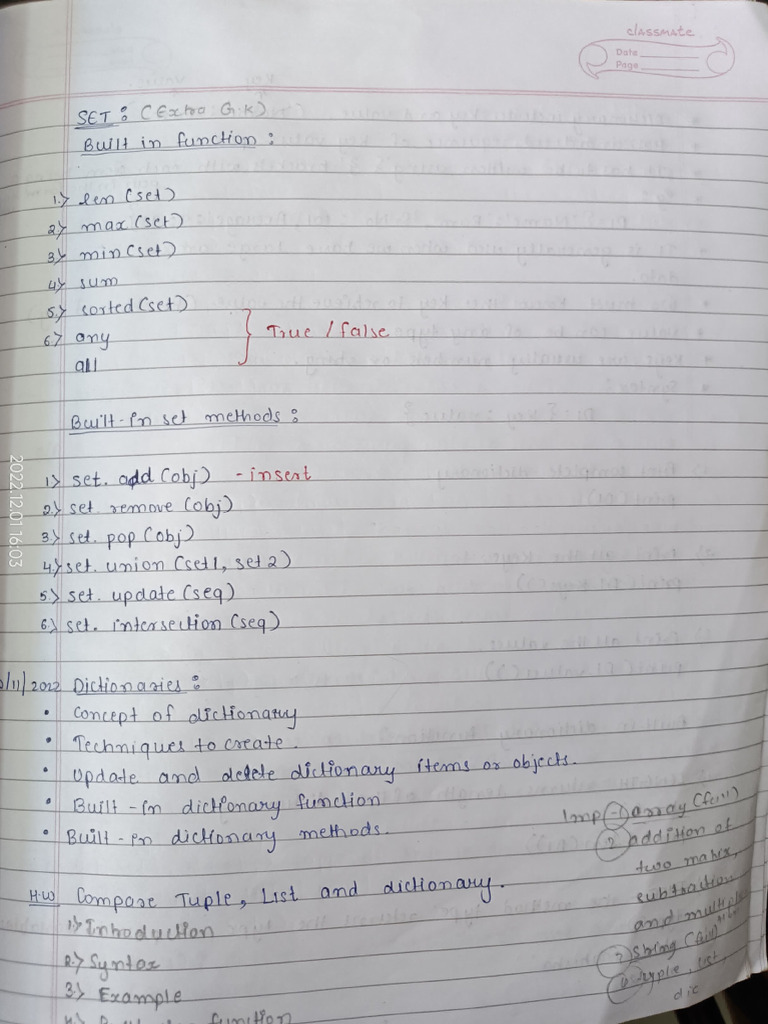 classmate
Date
Page
SET : (Extra G.K)
Built in function :
1.> len (set)
2> max (set)
3> min (set)
4> sum
5.> sorted (set)
6.> any
all
True / false
Built-in set methods :
1> set. add (obj) - insert
2.> set remove (obj)
3> set. pop (obj)
4.> set. union (set1, set 2)
5> set. update (seq)
6.> set. intersection (seq)
/11/2022 Dictionaries :
• Concept of dictionary
• Techniques to create.
• Update and delete dictionary items or objects.
• Built-in dictionary function
• Built-in dictionary methods.
Imp 1 array (full)
2 addition of
two matrix,
subtraction
and multiple
3 string (full)
4 Tuple, list,
dic
H.W Compare Tuple, List and dictionary.
1> Introduction
2.> Syntax
3.> Example
function
2022.12.01 16:03